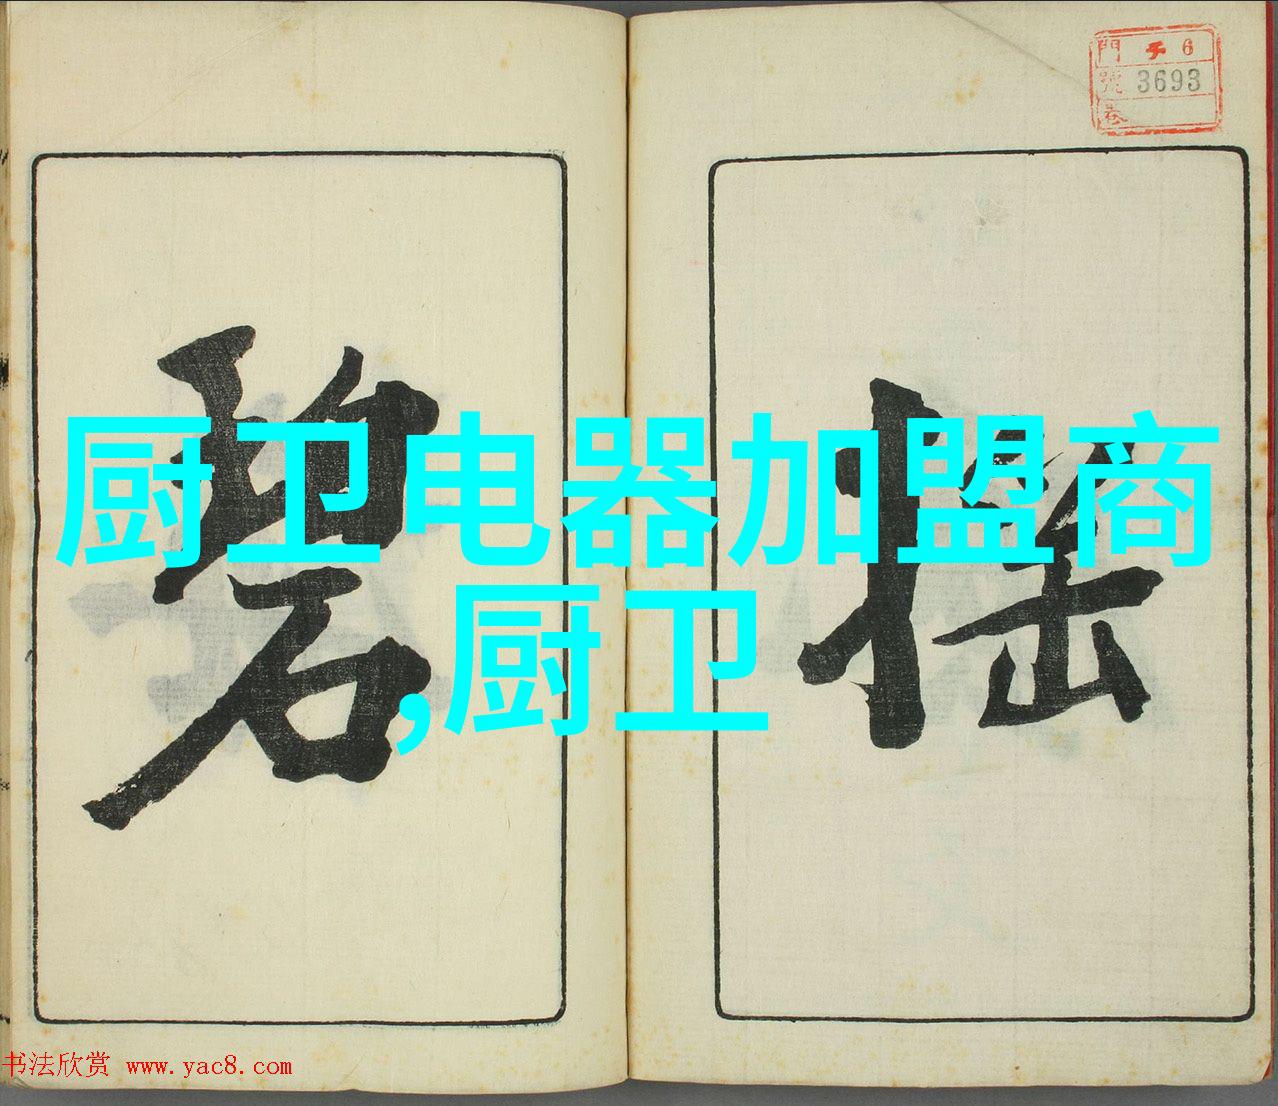 門 チ 6
號 3693
卷
摇
碧
厨卫电器加盟商
,厨卫
书法欣赏 www.yac8.com